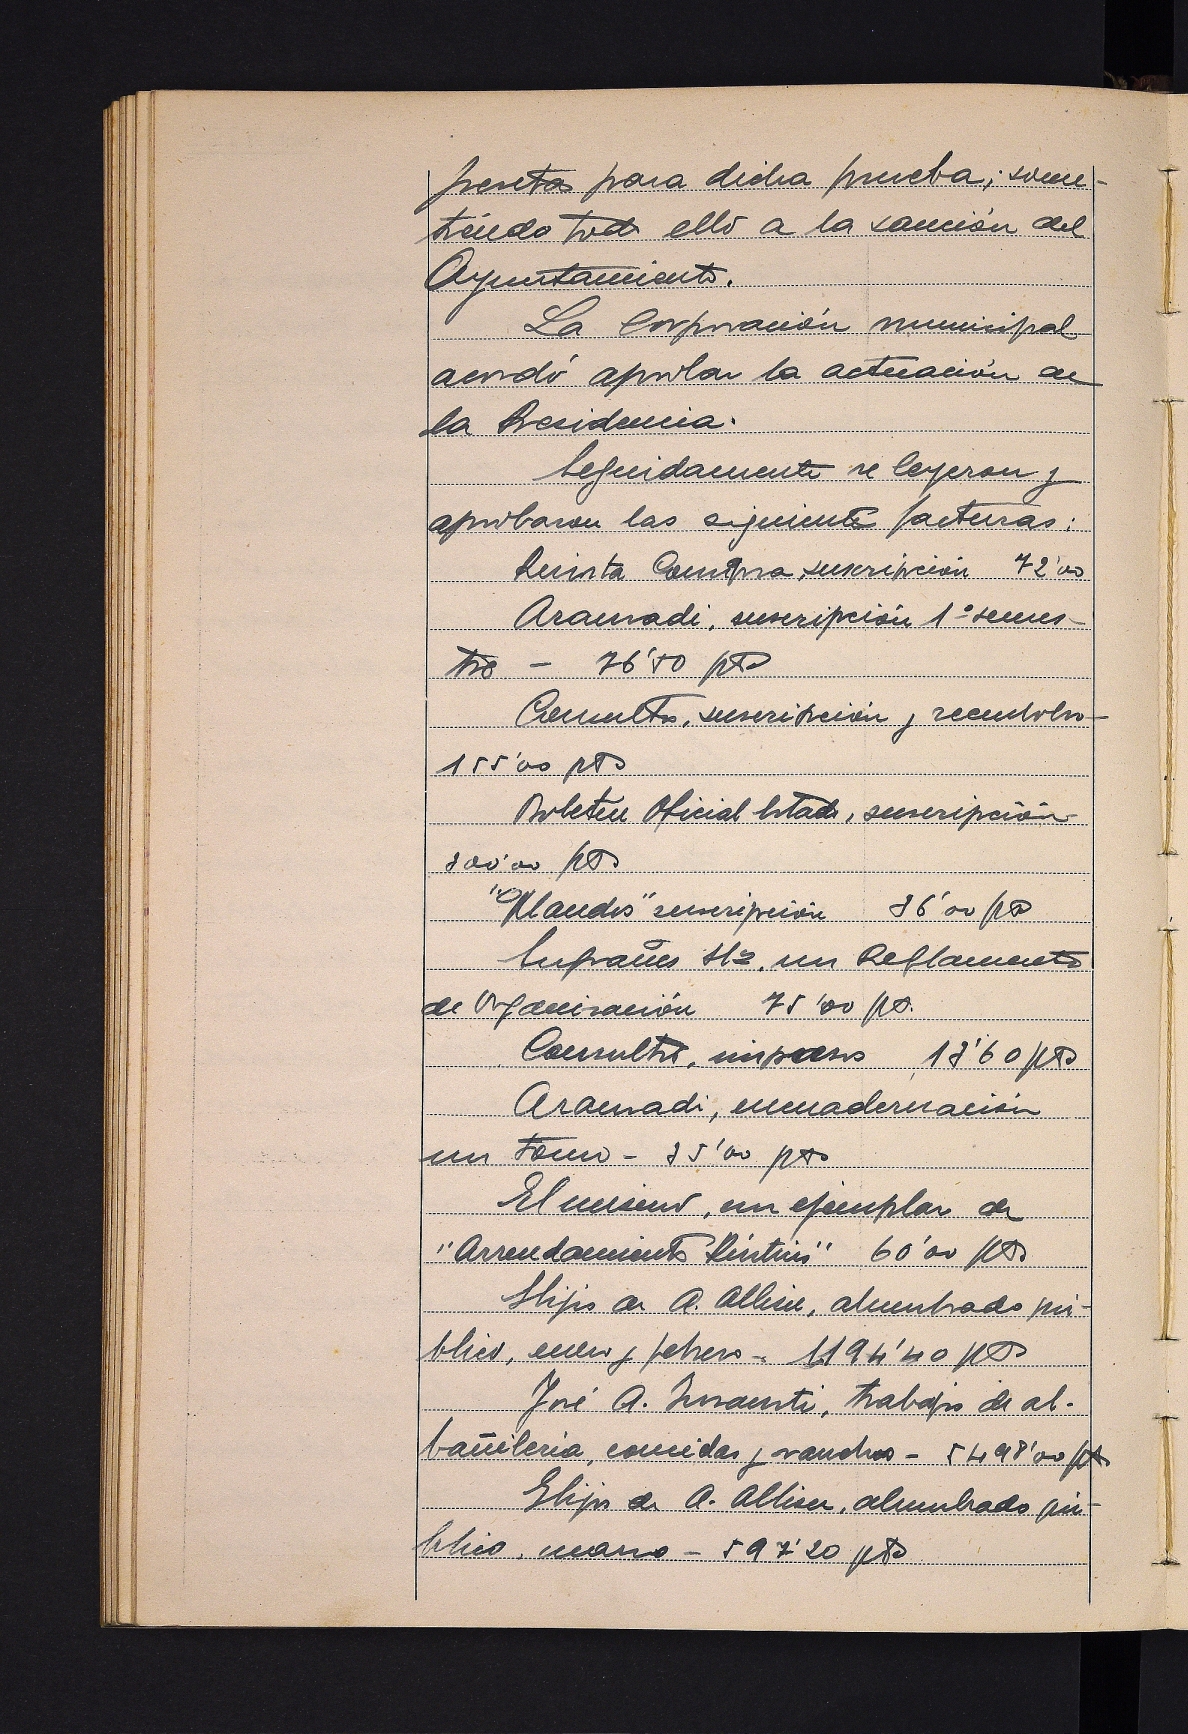 pesetas para dicha prueba; some-
tiendo todo ello a la sanción del
Ayuntamiento.
La Corporación municipal
acordó aprobar la actuación de
la Presidencia.
Seguidamente se leyeron y
aprobaron las siguientes facturas:
Revista Compra, suscripción 72'00
Aranzadi, suscripción 1º semes-
tre - 76'50 pts
Consultor, suscripción y reembolso-
155'00 pts
Boletín Oficial Estado, suscripción
300'00 pts
suscripción 36'00 pts
un Reglamento
de Organización 75'00 pts.
Consultor, impresos 13'60 pts
Aranzadi, encuadernación
un tomo - 35'00 pts
El mismo, un ejemplar de
"Arrendamientos Rústicos" 60'00 pts
Hijos de A. alumbrado pú-
blico, enero y febrero - 1194'40 pts
José A. trabajos de al-
bañilería, comidas y - 5498'00 pts
Hijos de A. alumbrado pú-
blico, marzo - 597'20 pts